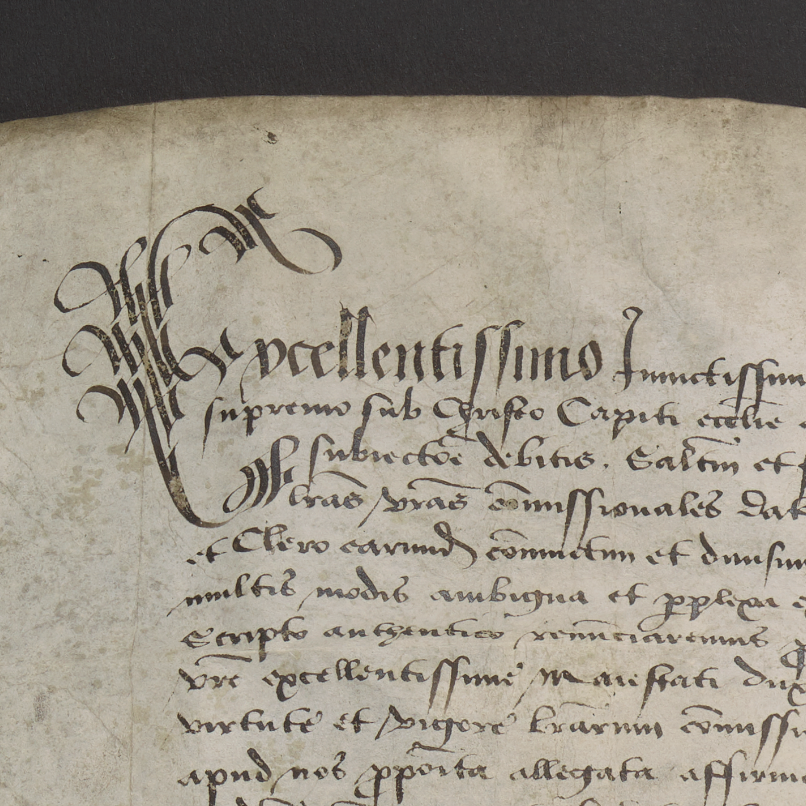 Excellentissimo Inuictissim
supremo sub Christo Capiti eccl̄ie
subiectōe debitis. Salt̄m et
lrās vrās cōmissionales dat
et Clero earund cōiunctim et diuisim
multis modis ambigua et pplexa
Scripto authentico renūciaremus
vrē excellentissime Maiestati dux
virtute et vigore lrārum cōmissi
apud nos ppōita allegata affirm